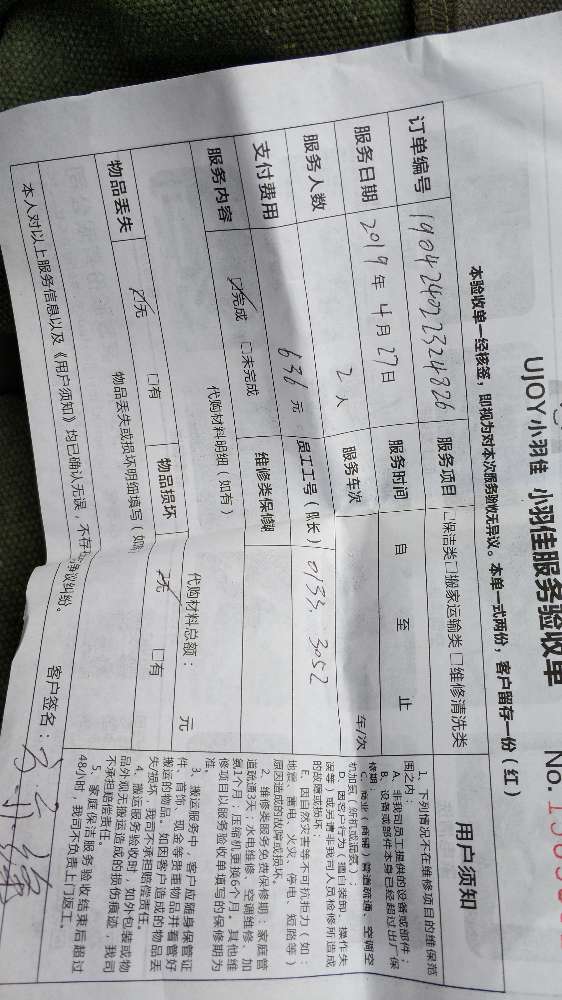 UJOY小羽佳 小羽佳服务验收单
No.
本验收单一经核签，即视为对本次服务验收无异议。本单一式两份，客户留存一份（红）
订单编号 190424022324826 服务项目 □保洁类□搬家运输类□维修清洗类
服务日期 2019年4月27日 服务时间 自 至 止
服务人数 2人 服务车次 年/次
支付费用 636元 员工工号（队长）0133. 3052
服务内容 ☑完成 □未完成 维修类保修期
代购材料明细（如有） 代购材料总额： 元
物品丢失 ☑无 □有 物品损坏 ☑无 □有
物品丢失或损坏明细填写（如
本人对以上服务信息以及《用户须知》均已确认无误，不存在争议纠纷。
客户签名：
用户须知
1、下列情况不在维修项目的维保范
围之内：
A、非我司员工提供的设备或部件；
B、设备或部件本身已经超过出厂保
修期；
C、商业（商铺）管道疏通、空调空
机加氨（新机或混氨）；
D、因客户行为（擅自装卸、操作失
误等）或另请非我司人员检修所造成
的故障或损坏；
E、因自然灾害等不可抗拒力（如：
地震、雷电、火灾、停电、短路等）
原因造成的故障或损坏。
2、维修类服务免费保修期：家庭管
道疏通3天；水电维修、空调维修、加
氨1个月；压缩机更换6个月。其他维
修项目以服务验收单填写的保修期为
准。
3、搬运服务中，客户应随身保管证
件、首饰、现金等贵重物品并看管好
搬运的物品。如因客户造成的物品丢
失/损坏，我司不承担赔偿责任。
4、搬运服务验收时，如外包装或物
品外观无搬运造成的损伤痕迹，我司
不承担赔偿责任。
5、家庭保洁服务验收结束后超过
48小时，我司不负责上门返工。